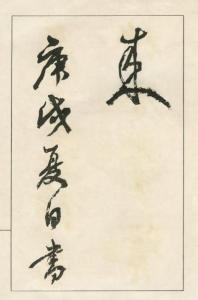 来
庚戌夏日書